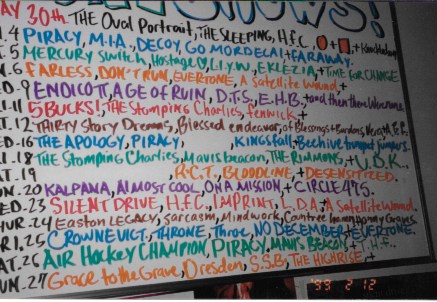 SHOWS!
AY 30th. THE Oval Portrait, THE SLEEPING, H.f.C,
.4 PIRACY, M.I.A., DECOY, GO MORDECAI + FARAWAY.
.5 MERCURY Switch, Hostage, L.I.Y.W, EKLEZIA, + TIME FOR CHANGE
.6 FARLESS, DON'T RUN, EVERTONE, A Satellite Wound, +
.9 ENDICOTT, AGE OF RUIN, D.T.S., E.H.B. + and then there Was none,
.11 5BUCKS!, THE Stomping Charlies, fenwick, +
.12 THIRTY Story Dreams, Blessed endeavor of Blessings + Burdens,
ED.16 THE APOLOGY, PIRACY, KINGSfall, Beehive trumpet jumpers.
I.18 THE Stomping Charlies, Mavis beacon, THE RIMMONS, + U.D.K.,
AT.19 R.C.T., BLOODLINE, + DESENSITIZED.
UN.20 KALPANA, AlMOST COOL, ON A MISSION, + CIRCLE 475.
ED.23 SILENT DRIVE, H.f.C., IMPRINT, L.D.A, A Satellite Wound.
HUR.24 Easton LEGACY, Sarcasm, Mindwork,
RI.25 CROWNEVICT, THRONE, Throe, NO DECEMBER + EVERTONE.
AT.26 AIR HOCKEY CHAMPION, PIRACY, MAVIS BEACON, + T.H.F..
UN.27 Grace to the Grave, Dresden, S.S.B, THE HIGHRISE, +
2 12